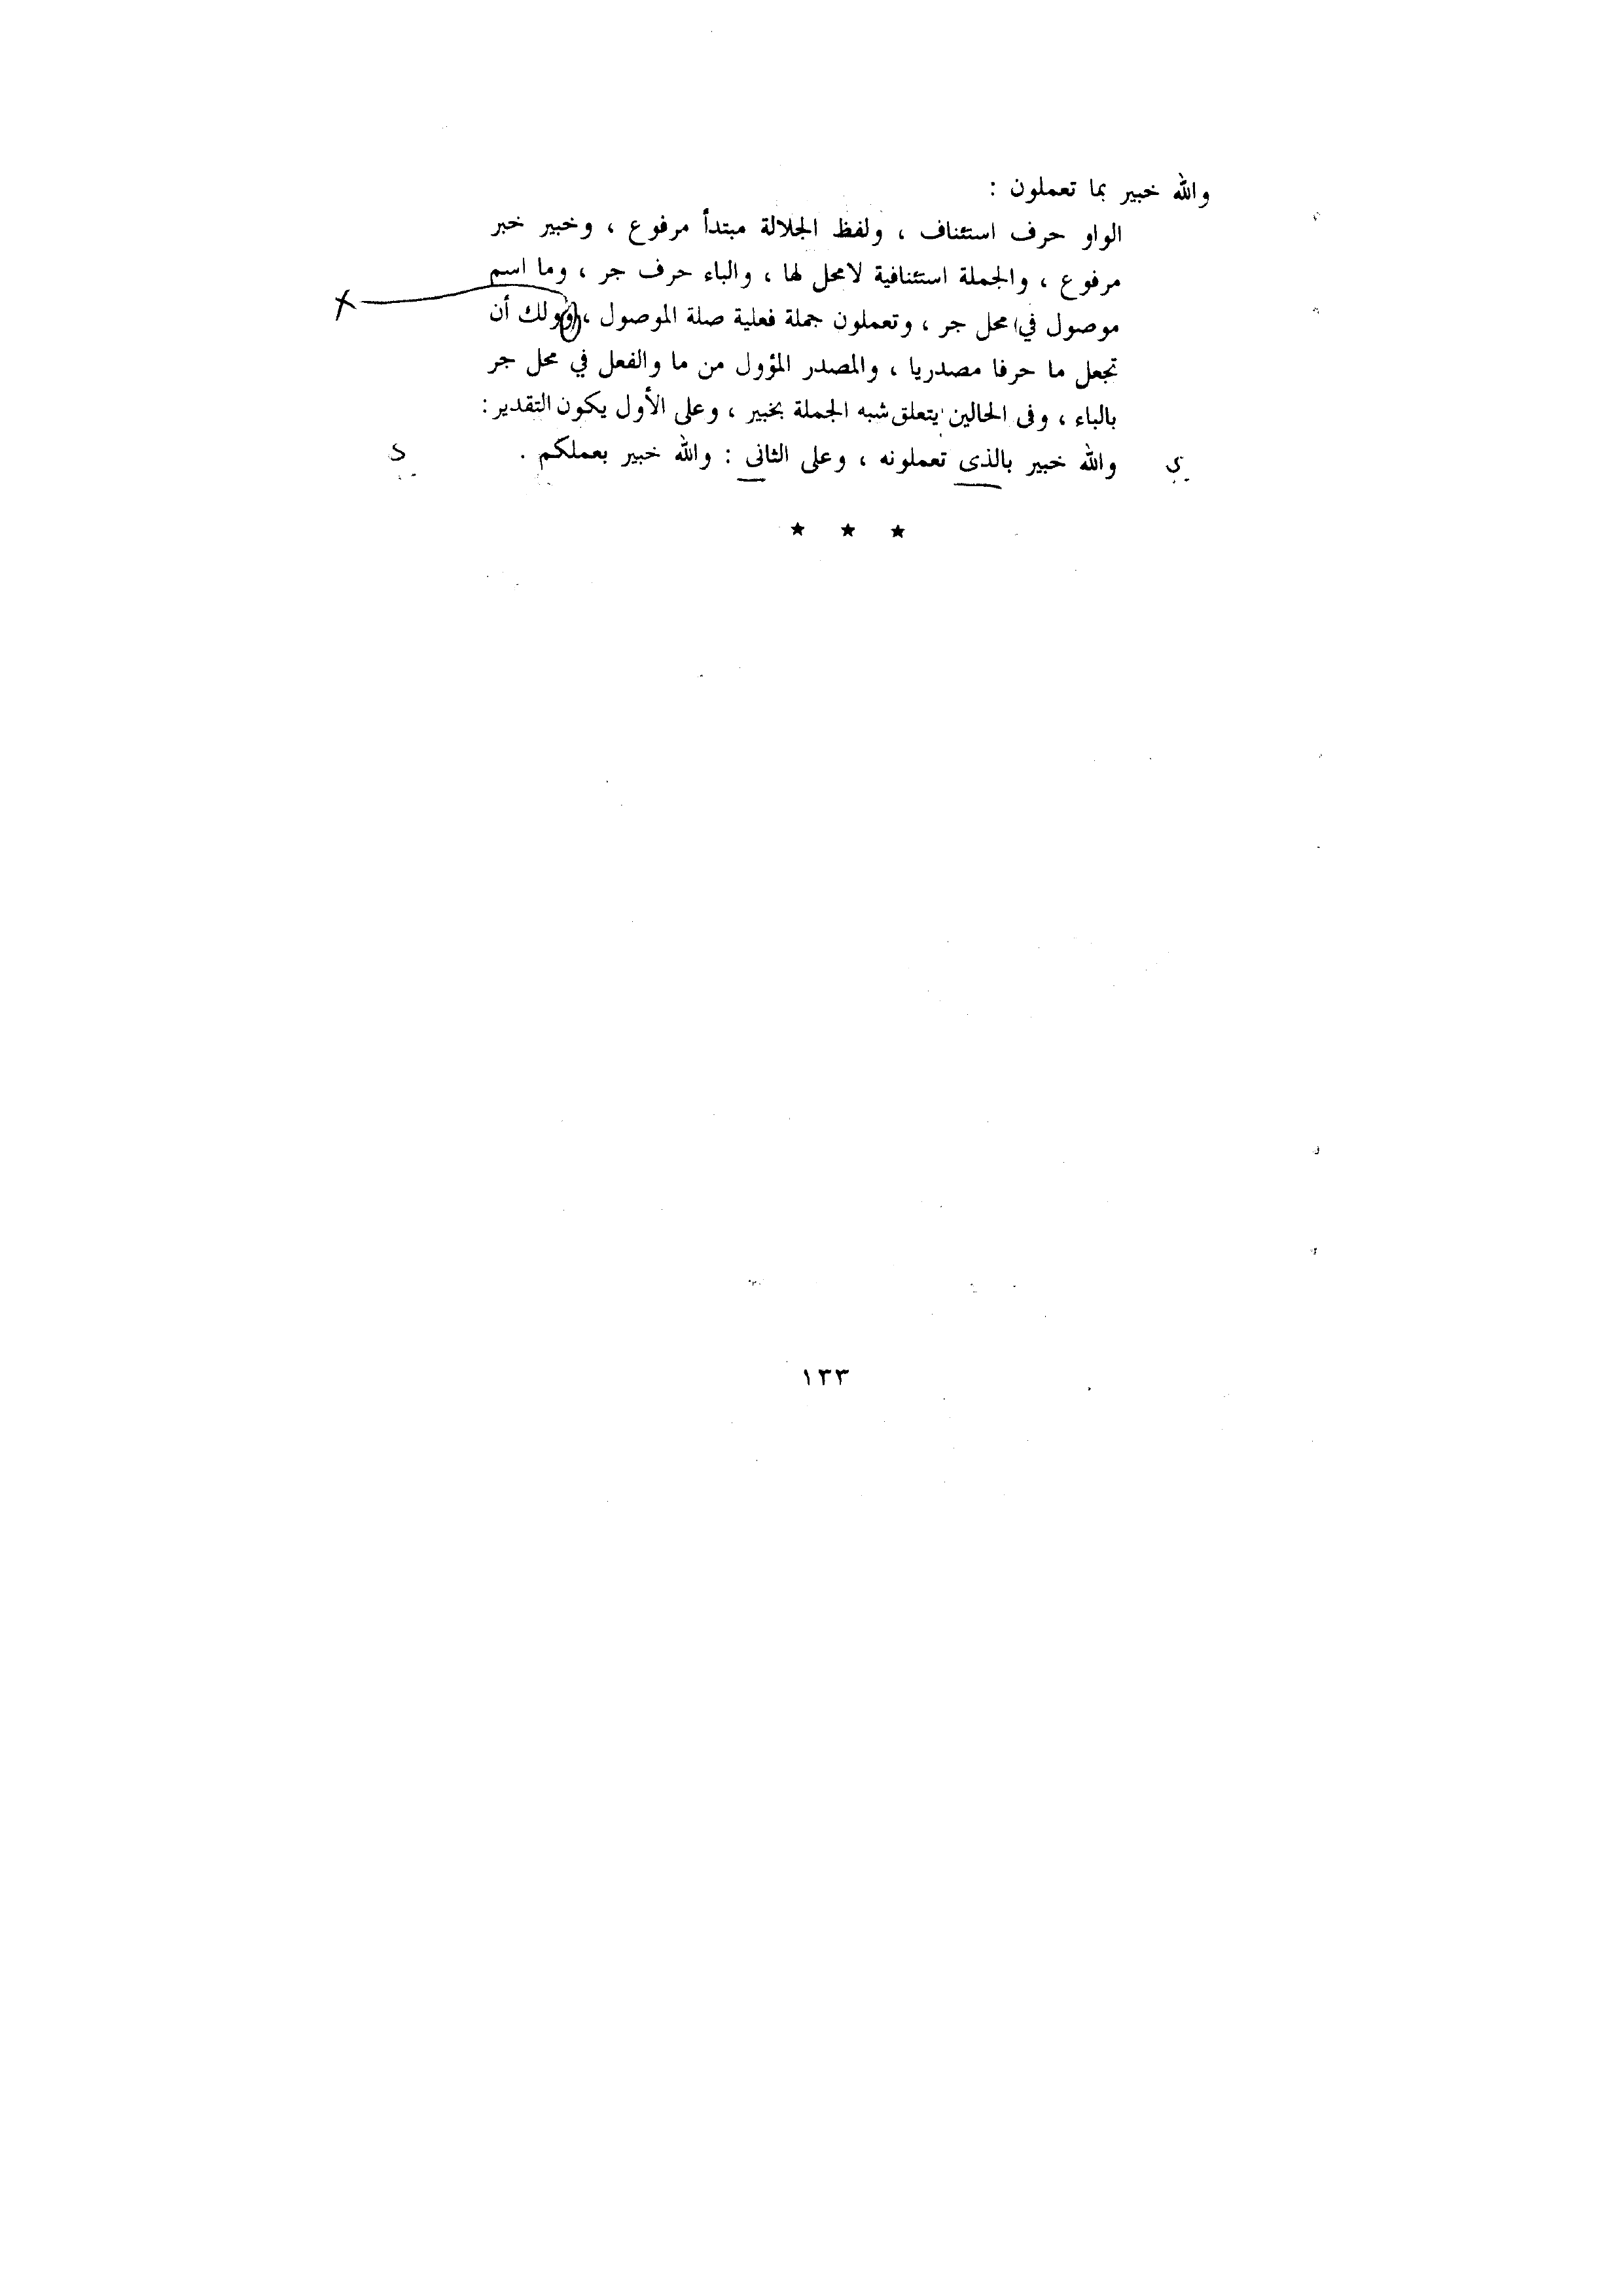 والله خبير بما تعملون :
الواو حرف استئناف ، ولفظ الجلالة مبتدأ مرفوع ، وخبير خبر
مرفوع ، والجملة استئنافية لامحل لها ، والباء حرف جر ، وما اسم
موصول في محل جر ، وتعملون جملة فعلية صلة الموصول ، وولك أن
تجعل ما حرفا مصدريا ، والمصدر المؤول من ما والفعل في محل جر
بالباء ، وفى الحالين يتعلق شبه الجملة بخبير ، وعلى الأول يكون التقدير :
والله خبير بالذى تعملونه ، وعلى الثانى : والله خبير بعملكم .
★ ★ ★
١٣٣